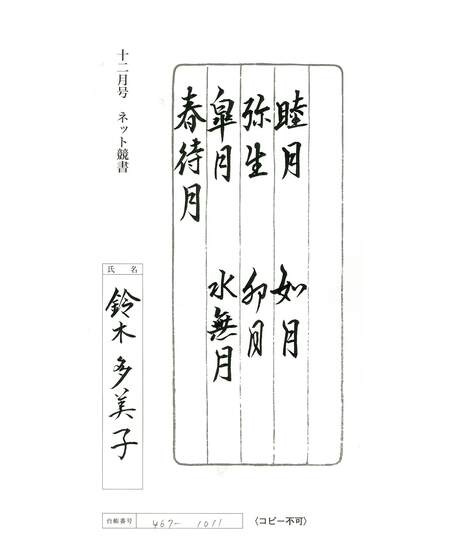 睦月　如月
弥生　卯月
皐月　水無月
春待月
十二月号　ネット競書
氏名
鈴木多美子
台帳番号 467-1011
〈コピー不可〉